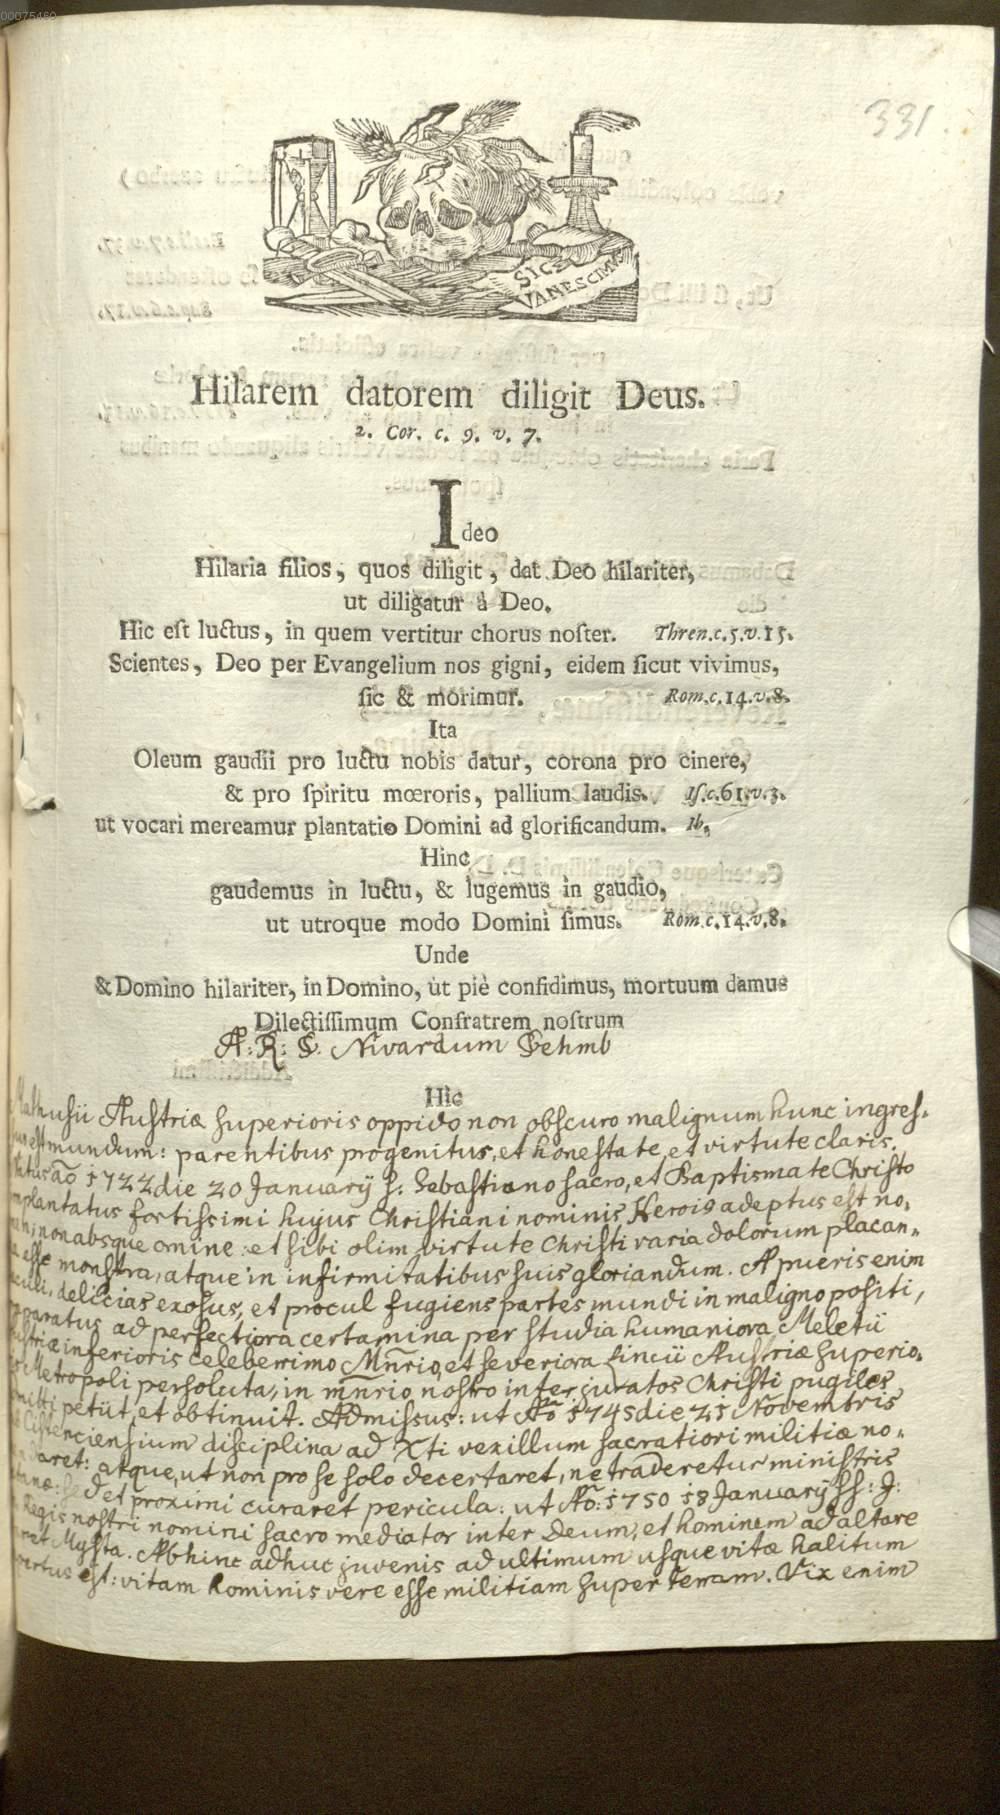 00075460
331.
SIC
VANESCIMUS
Hilarem datorem diligit Deus.
2. Cor. c. 9. v. 7.
Ideo
Hilaria filios, quos diligit, dat Deo hilariter,
ut diligatur à Deo.
Hic eſt luctus, in quem vertitur chorus noſter. Thren. c. 5. v. 15.
Scientes, Deo per Evangelium nos gigni, eidem ſicut vivimus,
ſic & morimur. Rom. c. 14. v. 8.
Ita
Oleum gaudii pro luctu nobis datur, corona pro cinere,
& pro ſpiritu mœroris, pallium laudis. Iſ. c. 61. v. 3.
ut vocari mereamur plantatio Domini ad glorificandum. Ib.
Hinc
gaudemus in luctu, & lugemus in gaudio,
ut utroque modo Domini ſimus. Rom. c. 14. v. 8.
Unde
& Domino hilariter, in Domino, ut piè confidimus, mortuum damus
Dilectiſſimum Confratrem noſtrum
A: R: P. Nivardum
Hic
Auſtriæ Superioris oppido non obſcuro malignum hunc ingreſ-
eſt mundum: parentibus progenitus, et honeſtate, et virtute claris.
aõ 1722 die 20 Januarÿ S: Sebaſtiano sacro, et Baptismate Chriſto
fortiſsimi hujus Chriſtiani nominis Herois adeptus eſt no-
non absque omine: et sibi olim virtute Chriſti varia dolorum placan-
eſſe monſtra, atque in infirmitatibus suis gloriandum. A pueris enim
delicias exosus, et procul fugiens partes mundi in maligno positi,
ad perfectiora certamina per ſtudia humaniora Melecii
inferioris celeberrimo Mñrio, et severiora Lincii Auſtriæ Superio-
Metropoli persoluta, in mñrio noſtro inter juratos Chriſti pugiles
petiit, et obtinuit. Admiſsus: ut Aõ 1745 die 21 Novembris
Ciſterciensium disciplina ad Xti vexillum sacratiori militiæ no-
daret: atque, ut non pro se solo decertaret, ne traderetur miniſtris
sed et proximi curaret pericula: ut Aõ: 1750 18 Januarÿ SS: J:
Regis noſtri nomini sacro mediator inter Deum, et hominem ad altare
Myſta. Abhinc adhuc juvenis ad ultimum usque vitæ halitum
eſt: vitam hominis vere eſſe militiam super terram. Vix enim